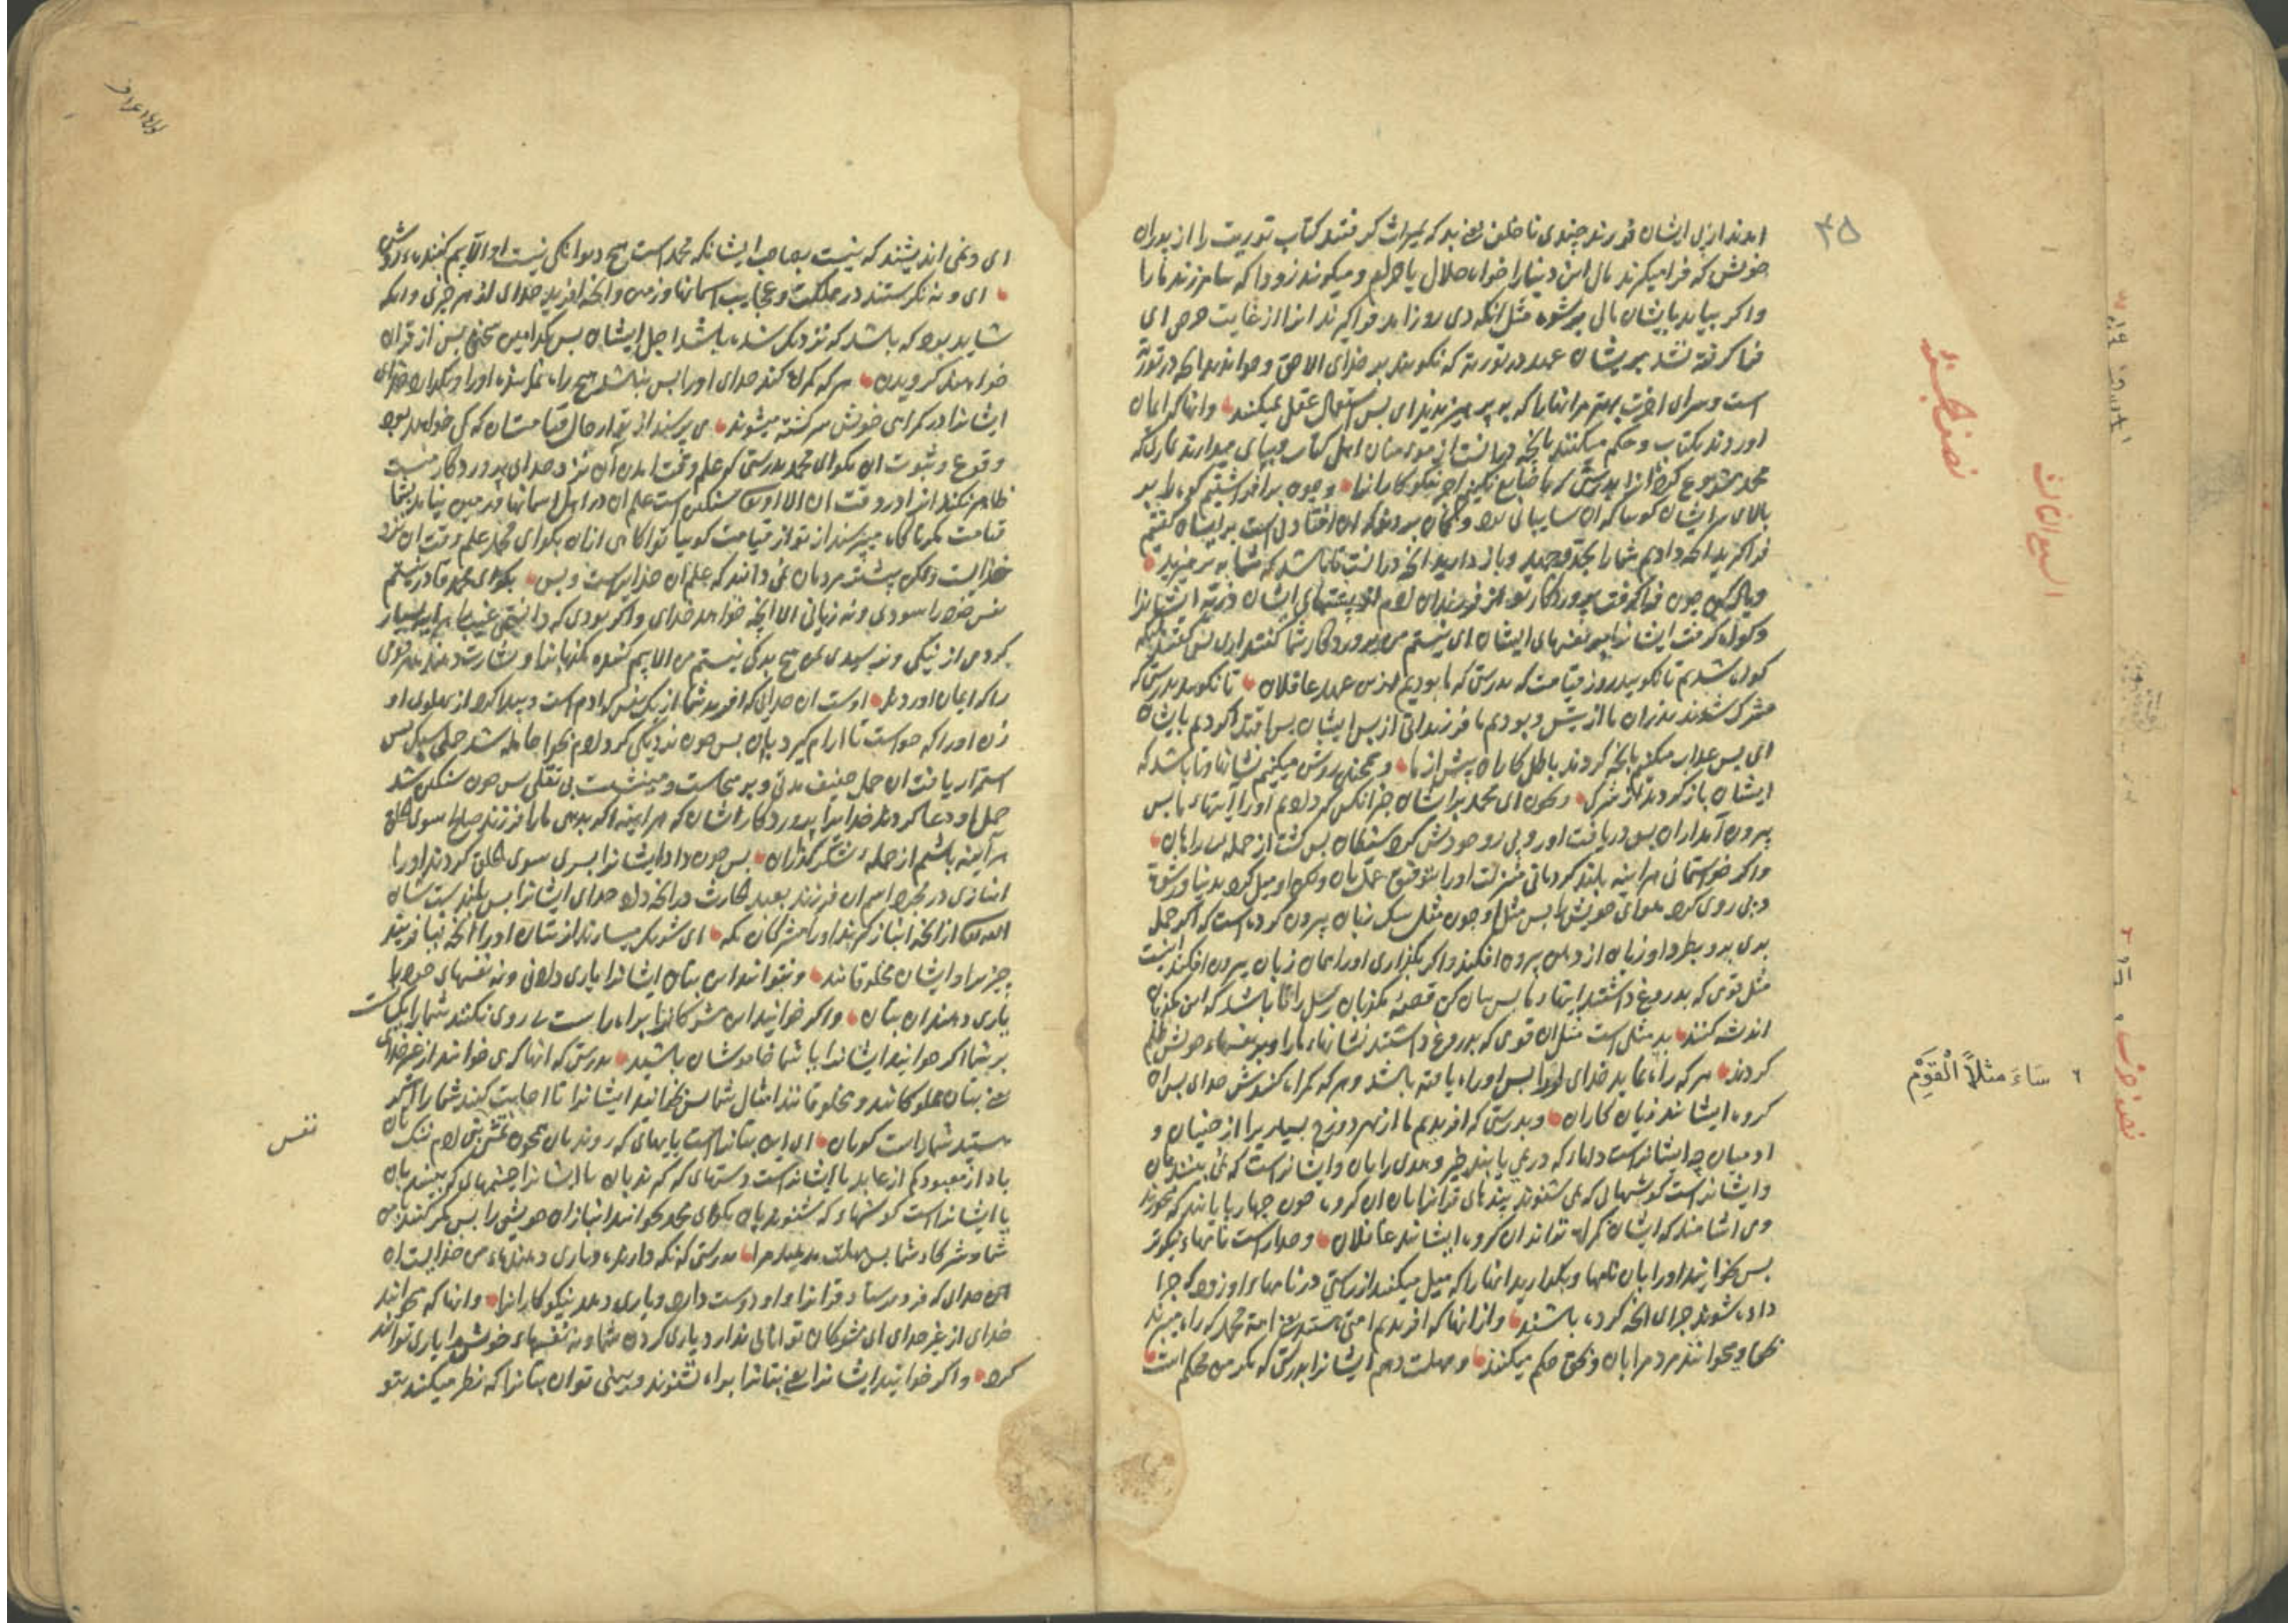 ۴۵
نصف جزء
السبع الثالث
امدند از پی ایشان فرزند چندی ناخلف یعنی بد که بمیراث گرفتند کتاب توریت را از پدران
خویش که فرا میگیرند مال این دنیا را خواه حلال یا حرام و میگویند زودا که بیامرزند ما را
واگر بیاید بایشان مالی مثل انکه دی روز امد فراگیرند انرا از غایت حرص ای
فرا گرفته نشد بر ایشان عهد در توریة که نگویند بر خدای الا حق و خواندند انچه در توریة
است و سرای اخرت بهتر مر انها را که بپرهیزیدند ای پس استعمال عقل نمیکنند وانها که ایمان
اوردند بکتاب و حکم میکنند بانچه در انست از مومنان اهل کتاب و بپای میدارند نماز که
محمد مشروع کرد انرا بدرستی که ما ضایع نکنیم اجر نیکوکارانرا و چون برافراشتیم کوه را بر
بالای سر ایشان گوییا که ان سایبانی بود و گمان بردند که ان افتادنی است بر ایشان گفتیم
فراگیرید انچه دادیم شما را بجد و جهد و یاد دارید انچه در انست تا باشد که شما بپرهیزید
و یاد کن چون فرا گرفت پروردگار تو از فرزندان ادم از پشتهای ایشان ذریّه ایشانرا
و گواه گرفت ایشانرا بر نفسهای ایشان ای نیستم من پروردگار شما گفتند اری پس گفتند ملیکه
گواه شدیم تا نگویید روز قیامت که بدرستی که ما بودیم ازین عهد غافلان تا نگویید بدرستی که
مشرک شدند پدران ما از پیش و بودیم ما فرزندانی از پس ایشان پس اقتدا کردیم بایشان
ای پس عذاب میکنی ما را بانچه کردند باطل کاران پیش از ما و همچنین روشن میکنیم نشانها و تا باشد که
ایشان باز گردند از شرک و بخوان ای محمد بر ایشان خبر انکس که دادیم او را ایتهاء ما پس
بیرون آمد از ان پس دریافت او را و پی رو خودش کرد شیطان پس گشت از جمله بی راهان
واگر خواستمانی هراینه بلند کردمانی منزلت او را بتوفیق عمل بان ولکن او میل کرد بدنیا
و پی روی کرد هوای خویش را پس مثل او چون مثل سگ زبان بیرون کرده است که اگر حمل
بری برو بطرد او زبان از دهن بیرون افکند واگر بگذاری او را همان زبان بیرون افکند اینست
مثل قومی که بدروغ داشتند ایتهاء ما پس بیان کن قصهٔ مکذبان رسل را تا باشد که این مکذبان
اندیشه کنند بد مثلی است مثل ان قومی که بدروغ داشتند نشانهاء ما را و بر نفسهاء خویش ظلم
کردند هر که راه نماید خدای او را پس او راه یافته باشد و هر که گمراه کندش خدای پس ان
گروه ایشانند زیان کاران و بدرستی که افریدیم ما از بهر دوزخ بسیاری را از جنیان و
ادمیان چه ایشانراست دلهاء که در نمی یابند خیر و هدی را بان و ایشانراست که نمی بینند بان
و ایشانراست گوشهای که نمی شنوند پندهای قرانرا بان ان گروه چون چهارپایانند که
وی اشامند که ایشان گمراه تراند ان گروه ایشانند غافلان و خدا راست نامهاء نیکوتر
پس بخوانید او را بان نامها و بگذارید انها را که میل میکنند از راستی در نامهاء او زود که جزا
داده شوند جزای انچه کرده باشند و از انها که افریدیم امتی هستند یعنی امة محمد که راه میبرند
بحق و میخوانند مردم را بان و بحق حکم میکنند و مهلت دهم ایشانرا بدرستی که مکر من محکم است
٦ سَاءَ مثلاً الْقَوْمُ
ای و نمی اندیشند که نیست بصاحب ایشان که محمد است هیچ دیوانگی نیست او الا بیم کننده روشن
ای و نه نگرستند در مملکت و عجایب اسمانها و زمین و انچه افریده خدای از هر چیزی و انکه
شاید بود که باشد که نزدیک شده باشد اجل ایشان پس بکدامین سخن پس از قران
خواهند گروید هر که گمراه کند خدای او را پس نباشد هیچ راه نماینده او را و بگذارد خدای
ایشانرا در گمراهی خویش سرگشته میشوند می پرسند از تو از حال قیامتشان که کی خواهد بود
وقوع و ثبوت ان بگو ای محمد بدرستی که علم وقت امدن آن نزد خدای پروردگار منست
ظاهر نکند انرا در وقت ان الا او سنگین است علم ان در اهل اسمانها و زمین نیاید بشما
قیامت مگر ناگاه میپرسند از تو از قیامت گوییا تو اگاهی ازان بگو ای محمد علم وقت ان نزد
خداست ولکن بیشتر مردمان نمی دانند که علم ان خدایراست و بس بگو ای محمد قادر نیستم
نفس خود را سودی و نه زیانی الا انچه خواهد خدای واگر بودی که دانستمی غیب را هراینه بسیار
کردمی از نیکی و نه رسیدی بمن هیچ بدی نیستم من الا بیم کننده مکذبانرا و بشارت دهنده مر قومی
را که ایمان اوردند اوست ان خدایی که افرید شما را از یک نفس که ادم است و پیدا کرد از پهلوی او
زن او را که حواست تا ارام گیرد بان پس چون نزدیکی کرد ادم بحوا حامله شد حملی سبک پس
استمرار یافت ان حمل خفیف مدتی و بر میخاست و مینشست بی ثقلی پس چون سنگین شد
حمل او دعا کردند خدایرا پروردگار ایشان که هراینه اگر بدهی ما را فرزند صالح سوی الخلق
هرآینه باشیم از جمله شکرگذاران پس چون داد ایشانرا پسری سوی الخلق کردند او را
انبازی در مجرد اسم ان فرزند بعبد الحارث در انچه داد خدای ایشانرا پس بلندست شان
الله از انچه انباز گیرند او را مشرکان مکه ای شریک میسازند از بتان او را انچه نیافریند
چیزی را و ایشان مخلوقانند و نتوانند این بتان ایشانرا یاری دادنی و نه نفسهای خود را
یاری دهند ان بتان واگر خوانید این مشرکانرا براه راست پی روی نکنند شما را یکسانست
بر شما اگر خوانید ایشانرا یا شما خاموشان باشید بدرستی که انها که می خوانند از غیر خدای
یعنی بتان مملوکانند و مخلوقانند امثال شما پس بخوانید ایشانرا تا اجابت کنند شما را اگر
هستید شما راست گویان ای این بتانراست پایهای که روند بان
باد از معبود کم از عابد یا ایشانراست دستهای که گیرند بان یا ایشانرا چشمهای که بینند بان
یا ایشانراست گوشهاء که شنوند بان بگو ای محمد بخوانید انبازان خویش را پس مکر کنید بمن
شما و شرکاء شما پس مهلت مدهید مرا بدرستی که نگه دارنده و یاری دهندهٔ من خدایست ان
خدای که فرو فرستاد قرانرا و او دوست دارد و یاری دهد نیکوکارانرا وانها که میخوانید
خدای از غیر خدای ای مشرکان توانایی ندارد یاری کردن شما و نه نفسهای خویش را یاری توانند
کرد واگر خوانید ایشانرا یعنی بتانرا براه نشنوند و بینی تو ان بتانرا که نظر میکنند بتو
نفس